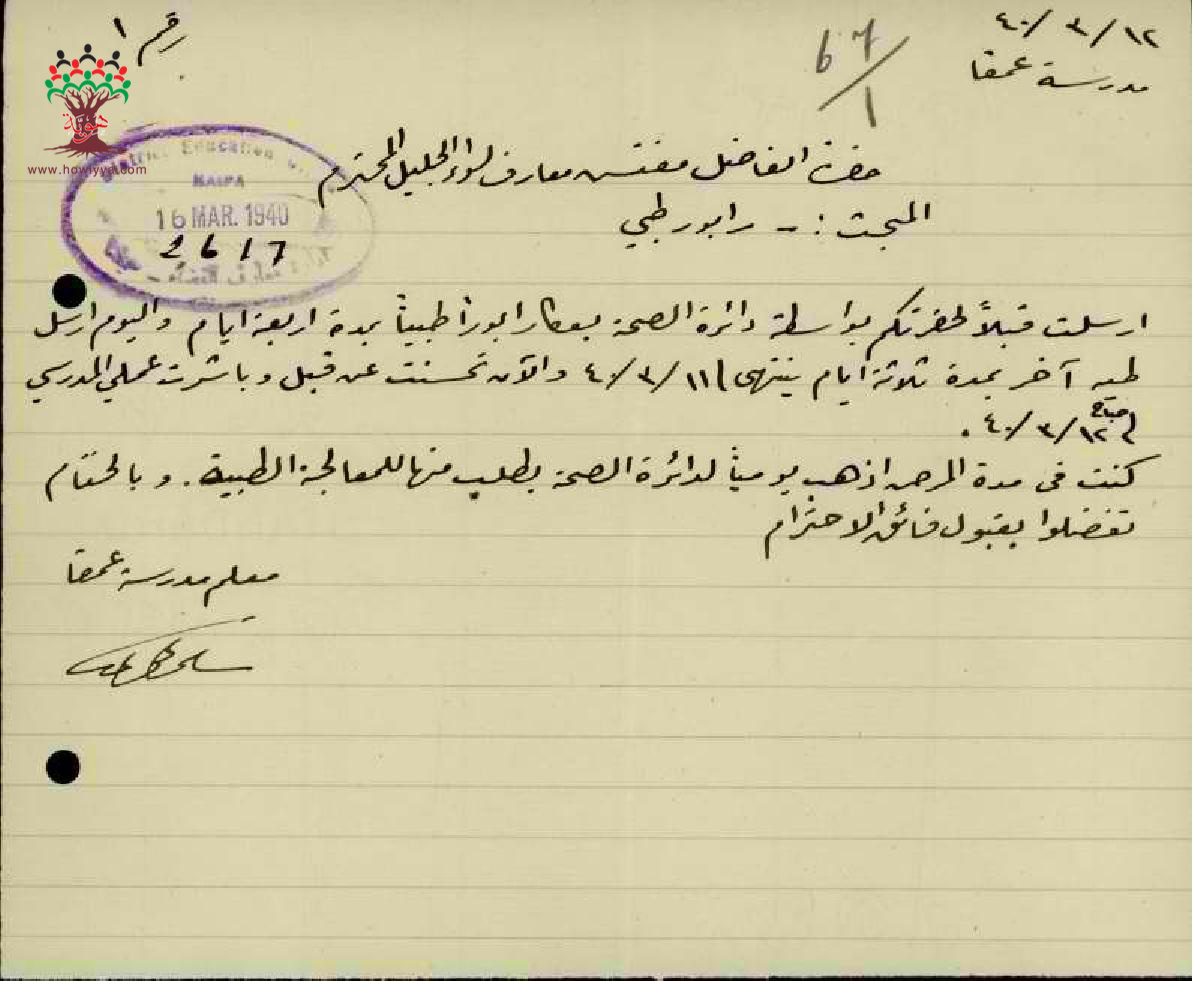 ١٢/٣/٤٠
رقم ١
مدرسة عمقا
67/1
هوية
www.howiyya.com
District Education
HAIFA
16 MAR. 1940
2617
حضرة الفاضل مفتش معارف لواء الجليل المحترم
المبحث :- رابور طبي
ارسلت قبلاً لحضرتكم بواسطة دائرة الصحة بعكا رابوراً طبياً بمدة اربعة ايام واليوم ارسل
طيه آخر بمدة ثلاثة ايام ينتهي في ١١/٣/٤٠ والآن تحسنت عن قبل وباشرت عملي المدرسي
صباح
في ١٢/٣/٤٠.
كنت في مدة المرض اذهب يومياً لدائرة الصحة بطلب منها للمعالجة الطبية. وبالختام
تفضلوا بقبول فائق الاحترام
معلم مدرسة عمقا